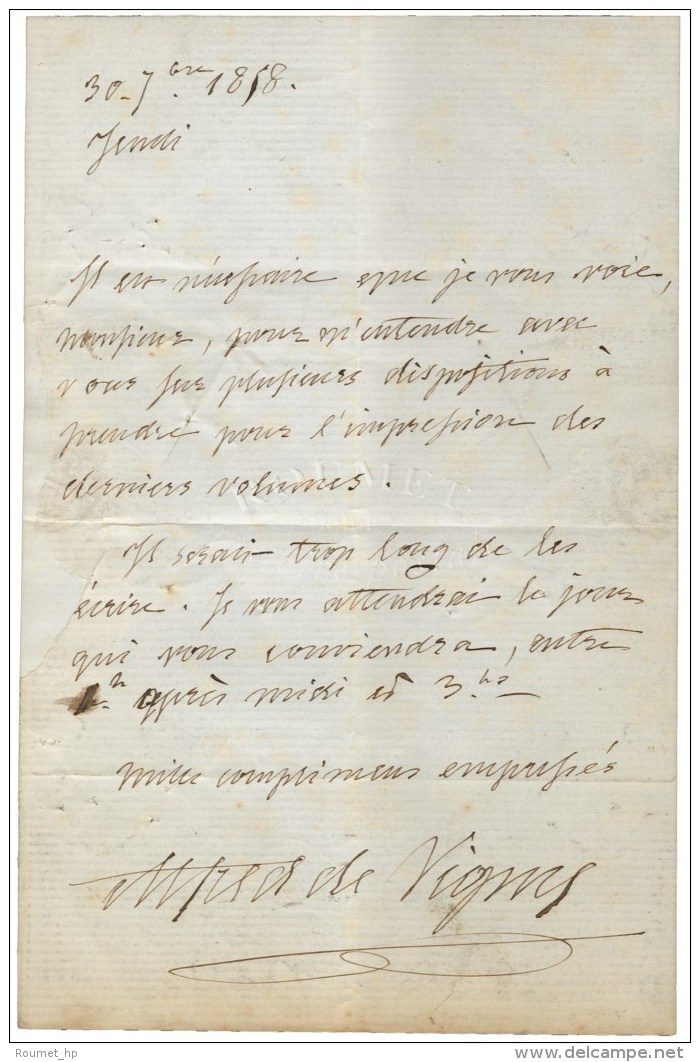 30 - 7bre 1858.
Jeudi
Il est nécessaire que je vous voie,
monsieur, pour m'entendre avec
vous sur plusieurs dispositions à
prendre pour l'impression des
derniers volumes.
Il serait trop long de les
écrire. Je vous attendrai le jour
qui vous conviendra, entre
1h après midi et 3hs
mille complimens empressés
Alfred de Vigny
Roumet_hp
delcampe.net